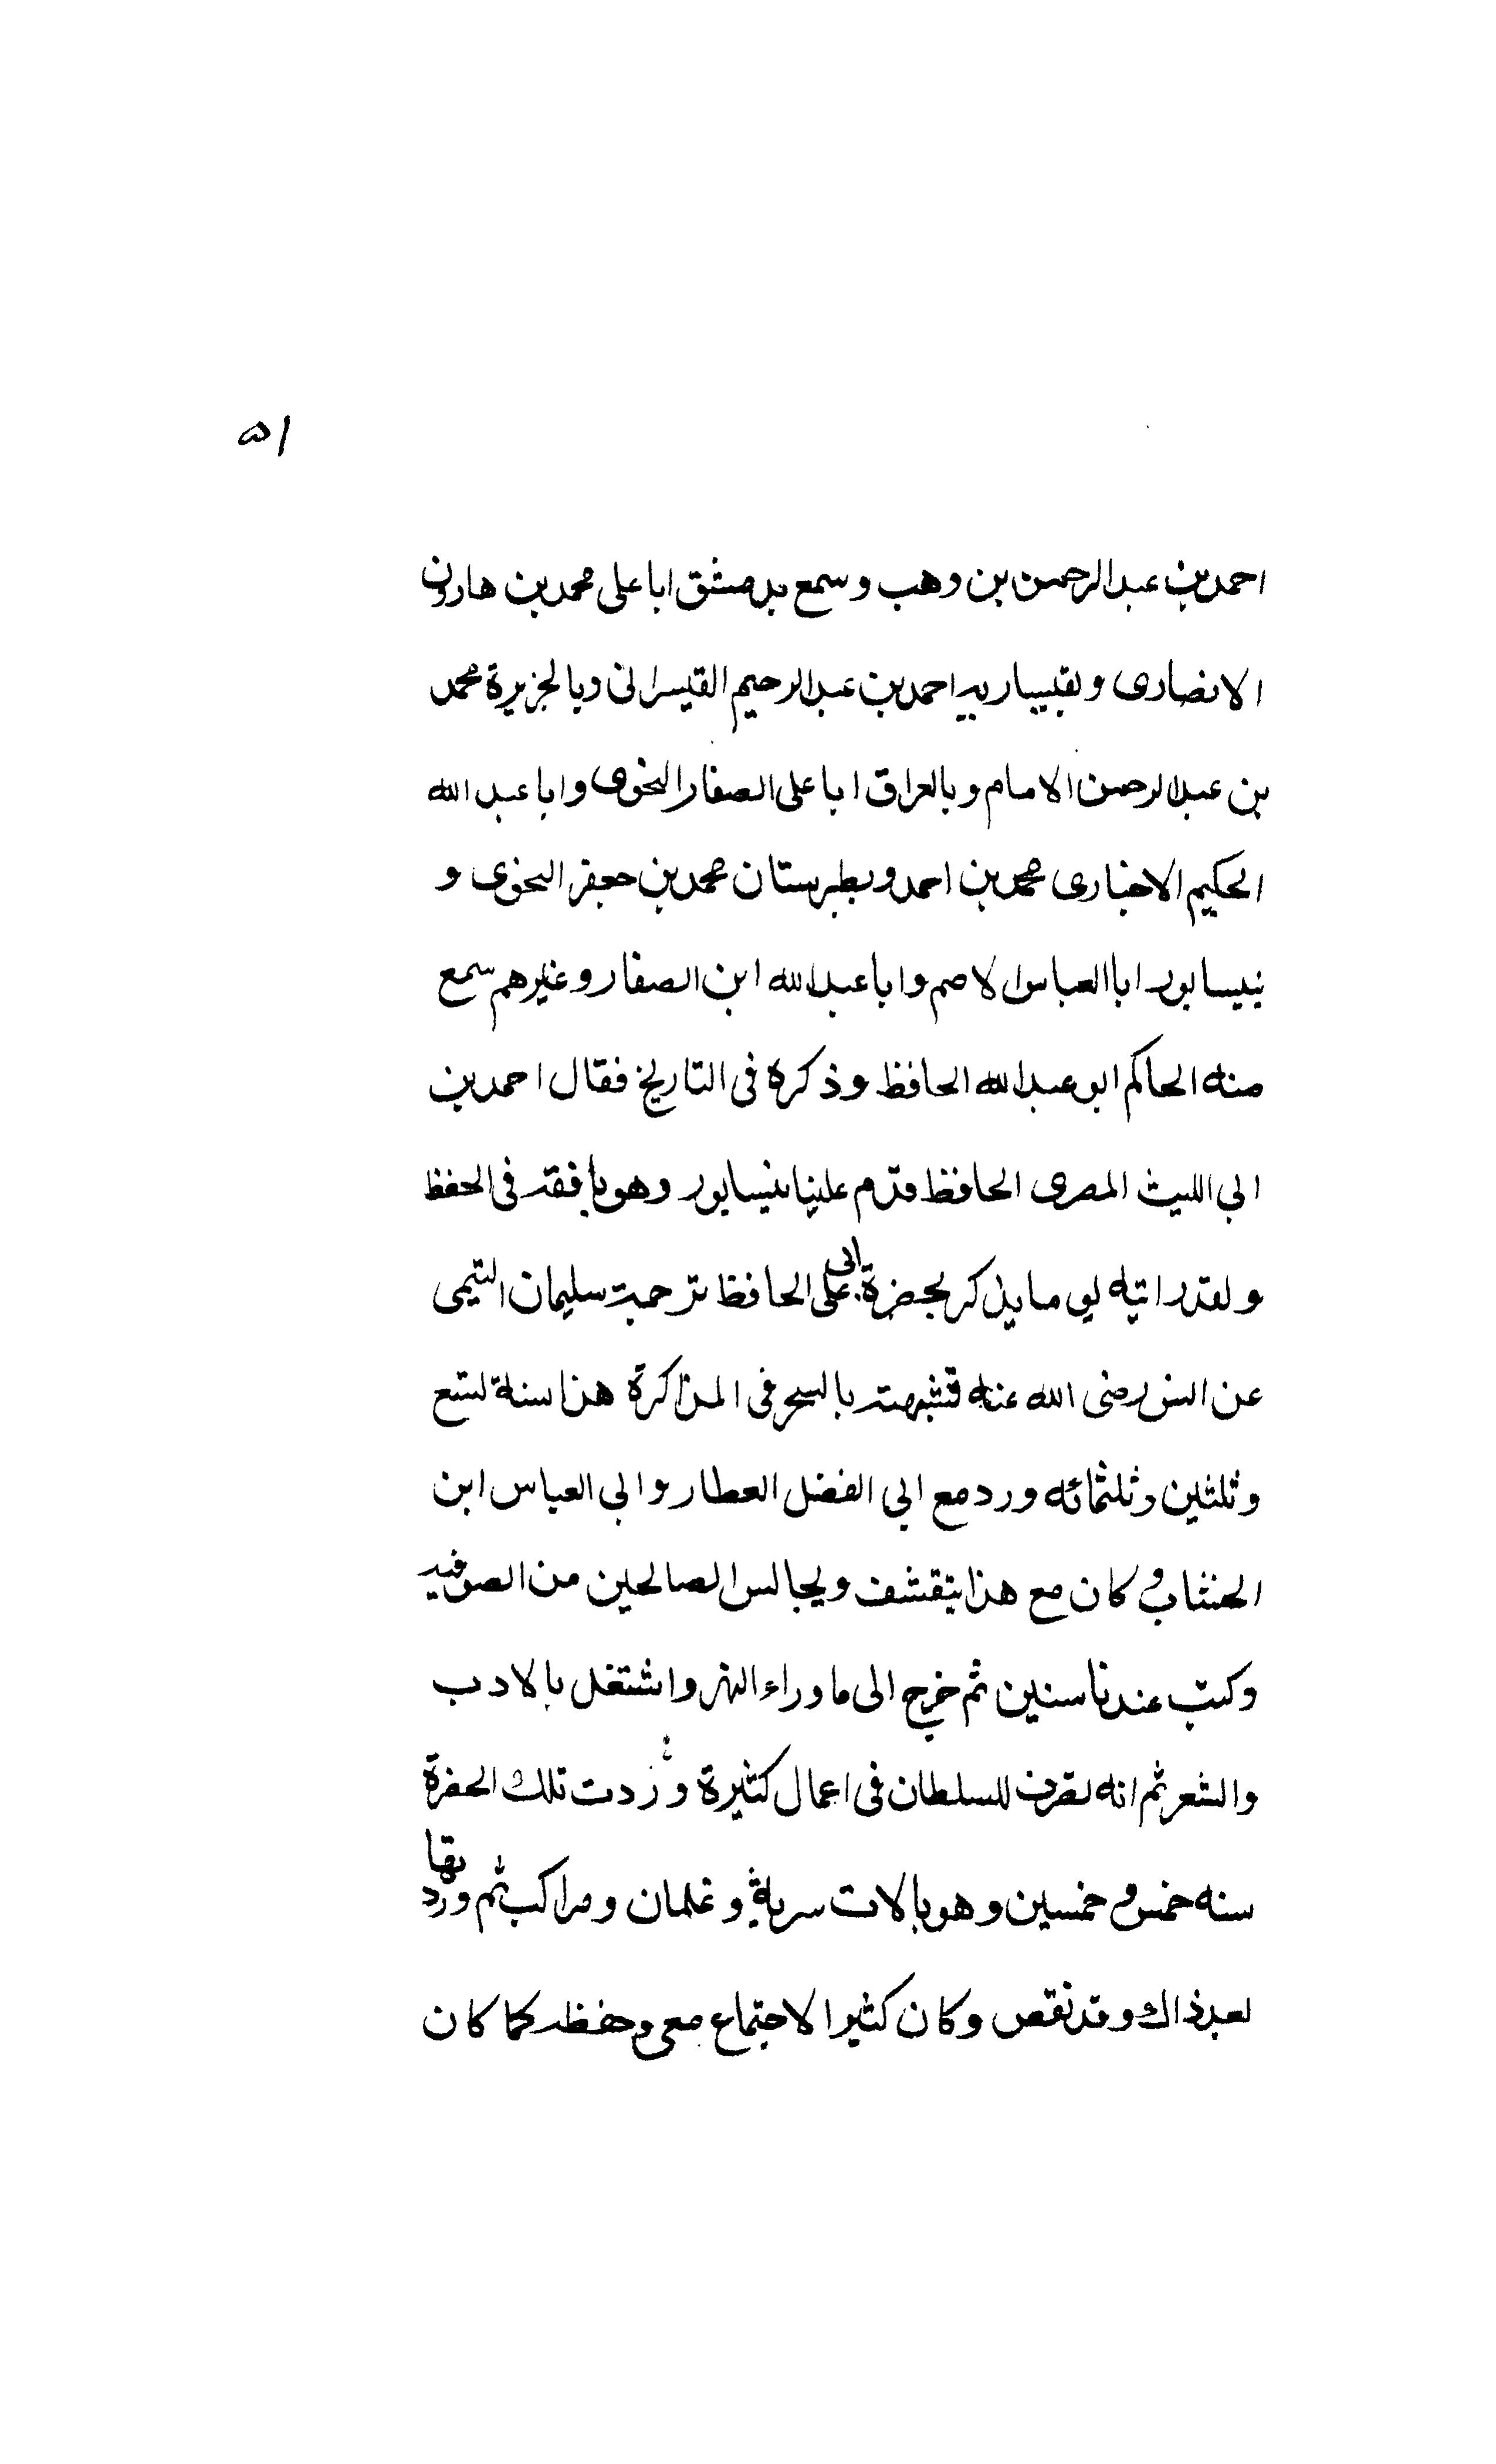 ٥١
احمد بن عبد الرحمن بن وهب وسمع بدمشق ابا على محمد بن هارون
الانصارى وبقيساريه احمد بن عبد الرحيم القيسرانى وبالجزيرة محمد
بن عبد الرحمن الامام وبالعراق ابا على الصفار النحوى وابا عبد الله
الحكيم الاخبارى محمد بن احمد وبطبرستان محمد بن جعفر النحوى و
بنيسابور ابا العباس الاصم وابا عبد الله ابن الصفار وغيرهم سمع
منه الحاكم ابو عبد الله الحافظ وذكره فى التاريخ فقال احمد بن
ابى الليث المصرى الحافظ قدم علينا بنيسابور وهو بافقه فى الحفظ
ولقد رايته يوما يذكر بحضرة ابى على الحافظ ترجمة سليمان التيمى
عن انس رضى الله عنه فشبهته بالسحر فى المذاكرة هذا سنة تسع
وثلثين وثلثمائه ورد مع ابى الفضل العطار وابى العباس ابن
الخشاب وكان مع هذا يتقشف ويجالس الصالحين من الصوفيه
وكتب عندنا سنين ثم خرج الى ما وراء النهر واشتغل بالادب
والشعر ثم انه تصرف للسلطان فى اعمال كثيرة و وردت تلك الحضرة
سنه خمس و خمسين وهو بالات سرية وغلمان ومراكب ثم وردتها
بعد ذالك وقد نقص وكان كثير الاجتماع معى وحفظه كما كان